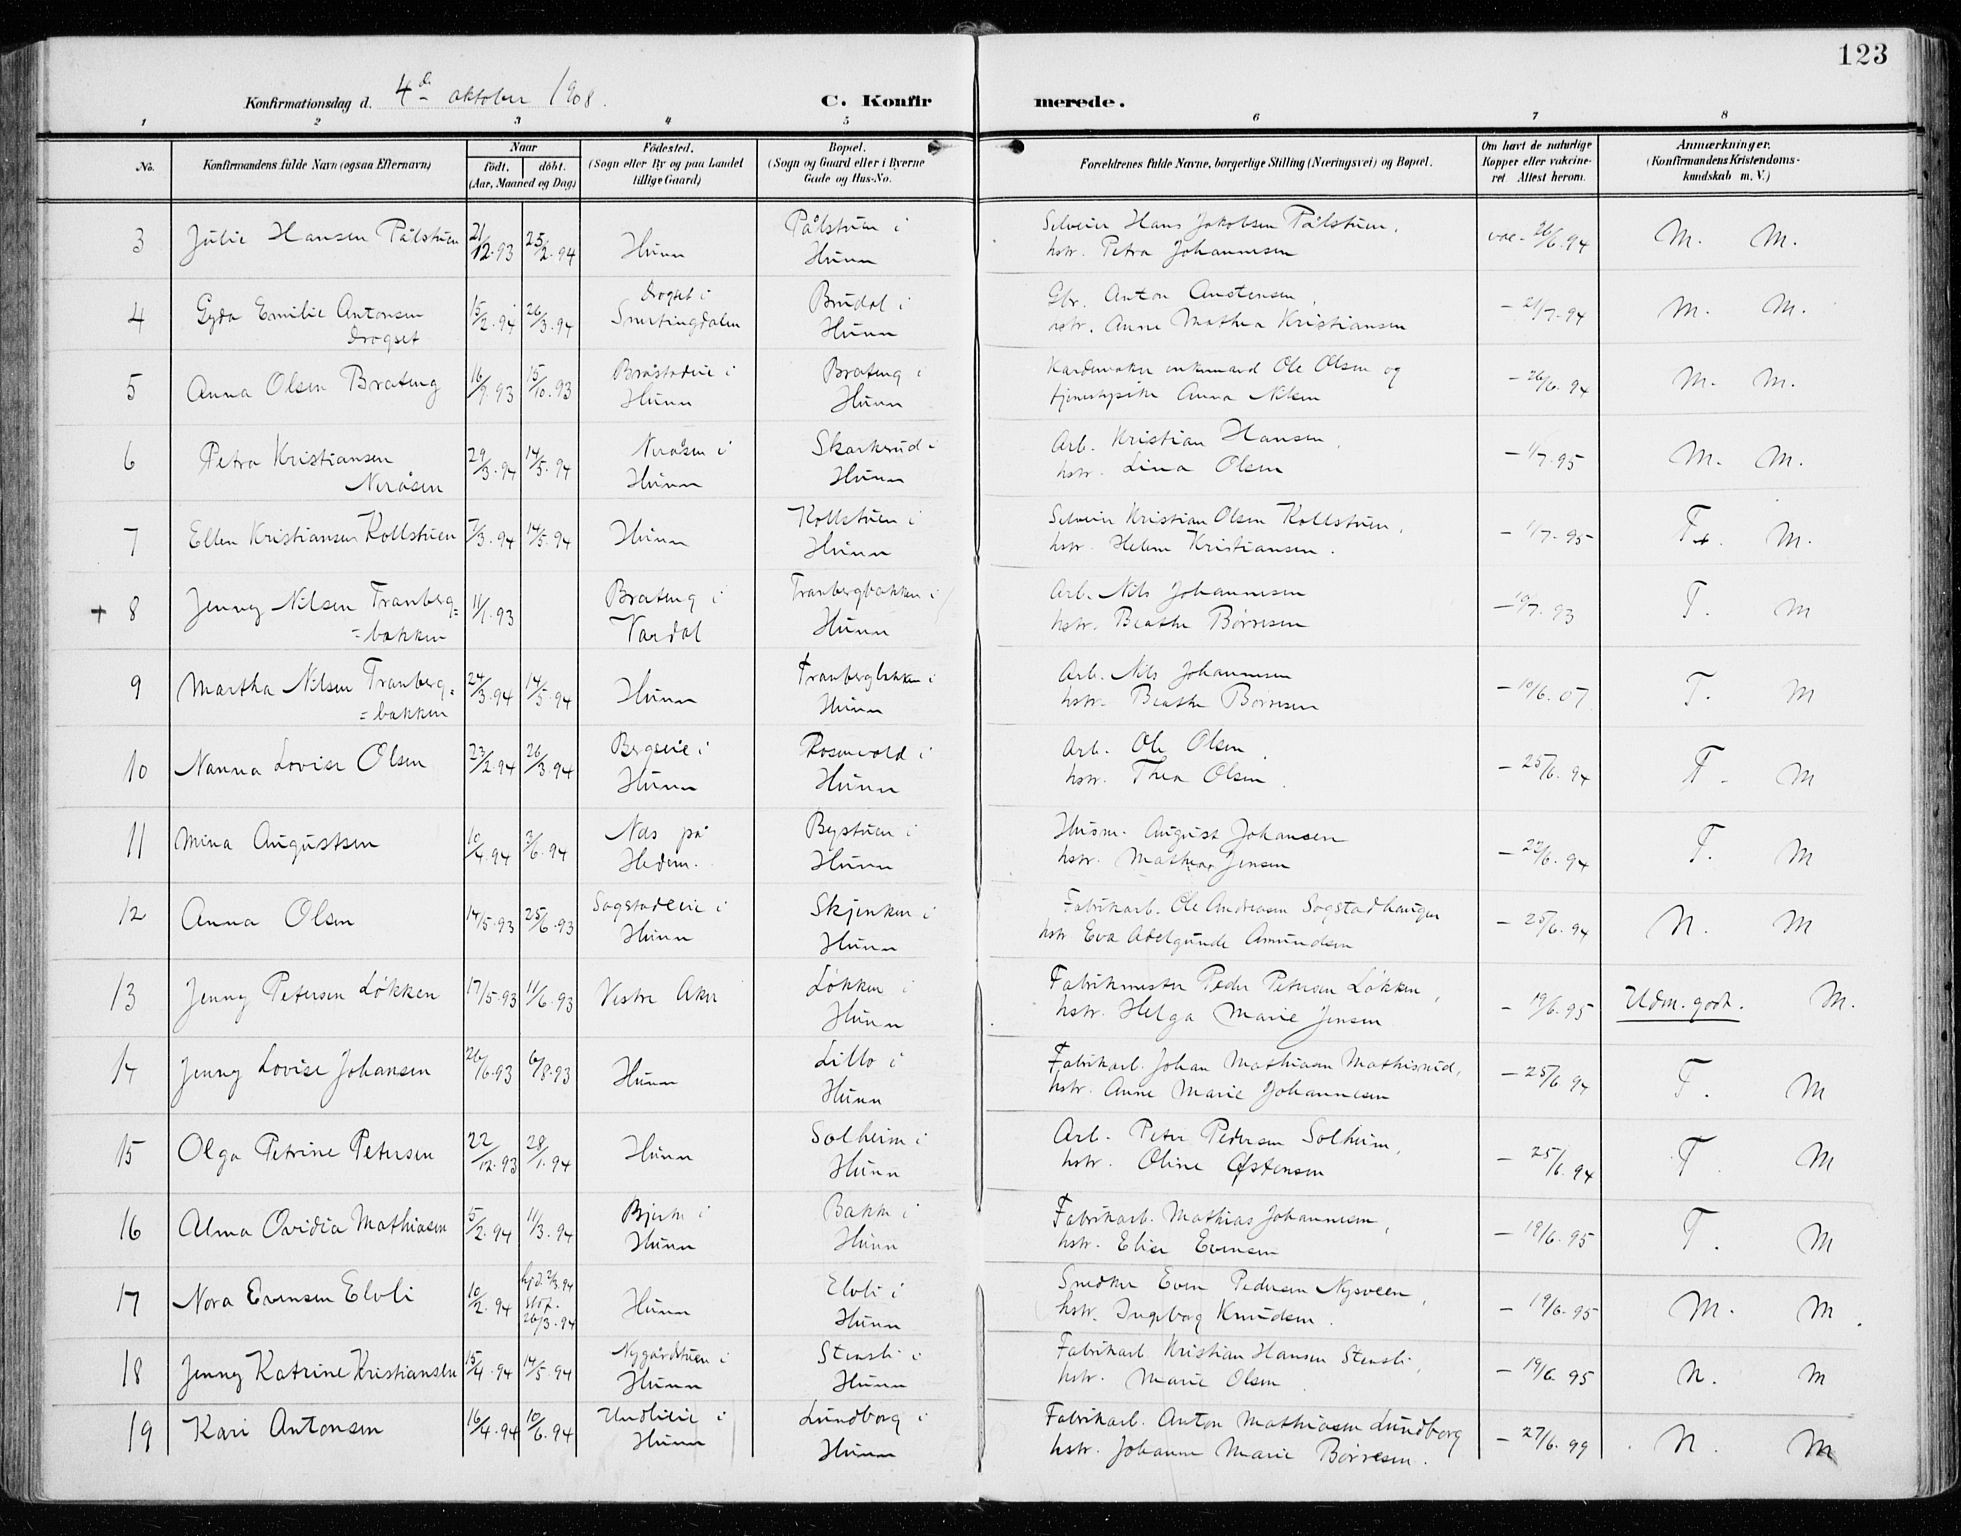 123
Konfirmationsdag d. 4de oktober 1908. C. Konfirmerede.
1 2 3 4 5 6 7 8
No. Konfirmandens fulde Navn (ogsaa Efternavn) Naar födt. döbt. (Aar, Maaned og Dag) Födested. (Sogn eller By og paa Landet tillige Gaard) Bopæl. (Sogn og Gaard eller i Byerne Gade og Hus-No. Forældrenes fulde Navne, borgerlige Stilling (Næringsvei) og Bopæl. Om havt de naturlige Kopper eller vakcineret. Attest herom. Anmærkninger. (Konfirmandens Kristendomskundskab m. V.)
3 Julie Hansen Pålstuen 21/12.93 25/2.94 Hunn Pålstuen i Hunn Selveier Hans Jakobsen Pålstuen, hstr. Petra Johannesen vac. 26/6.94 M. M.
4 Gyda Emilie Antonsen Drogset 15/2.94 26/3.94 Drogset i Snertingdalen Brudal i Hunn Gbr. Anton Anstensen, hstr. Anne Mathea Kristiansen – 21/7.94 M. M.
5 Anna Olsen Brateng 16/9.93 15/10.93 Bråstadeie i Hunn Brateng i Hunn enkemand Ole Olsen og tjenestepike Anna Nilsen – 26/6.94 M. M.
6 Petra Kristiansen Neråsen 29/3.94 14/5.94 Neråsen i Hunn Skarkerud i Hunn Arb. Kristian Hansen, hstr. Lina Olsen – 1/7.95 M. M.
7 Ellen Kristiansen Kollstuen 7/3.94 14/5.94 Hunn Kollstuen i Hunn Selveier Kristian Olsen Kollstuen, hstr. Helene Kristiansen. – 1/7.95 T+. M.
+ 8 Jenny Nilsen Tranberg= =bakken 11/1.93 Brateng i Vardal Tranbergbakken i Hunn Arb. Nils Johannesen hstr. Beathe Børresen – 10/7.93 T. M
9 Martha Nilsen Tranberg= =bakken 24/3.94 14/5.94 Hunn Tranbergbakken i Hunn Arb. Nils Johannesen hstr. Beathe Børresen – 10/6.07 T. M
10 Nanna Lovise Olsen 23/2.94 26/3.94 Bergseie i Hunn Rosenvold i Hunn Arb. Ole Olsen hstr. Thea Olsen. – 25/6.94 T. M
11 Mina Augustsen 10/4.94 3/6.94 Næs på Hedem. Bystuen i Hunn Husm. August Johansen hstr. Mathea Jensen – 22/6.94 T. M
12 Anna Olsen 14/5.93 25/6.93 Sogstadeie i Hunn Skjenken i Hunn Fabrikarb. Ole Andreasen Sogstadhaugen hstr Eva Adelgunde Amundsen – 25/6.94 N. M
13 Jenny Petersen Løkken 17/5.93 11/6.93 Vestre Aker Løkken i Hunn Fabrikmester Peder Petersen Løkken, hstr. Helga Marie Jensen – 19/6.95 Udm. godt. M.
14 Jenny Lovise Johansen 26/6.93 6/8.93 Hunn Lillo i Hunn Fabrikarb. Johan Mathiasen Mathisrud, hstr. Anne Marie Johannesen – 25/6.94 T. M
15 Olga Petrine Petersen 22/12.93 28/1.94 Hunn Solheim i Hunn Arb. Peter Pedersen Solheim, hstr. Oline Østensen – 25/6.94 T. M
16 Alma Ovidia Mathiasen 5/2.94 11/3.94 Bjerke i Hunn Bakke i Hunn Fabrikarb. Mathias Johannesen, hstr. Elise Evensen – 19/6.95 T. M
17 Nora Evensen Elvli 10/2.94 hjd. 2/3.94 stdf. 26/3.94 Hunn Elvli i Hunn Snedker Even Pedersen Nysveen, hstr. Ingeborg Knudsen. – 19/6.95 M. M.
18 Jenny Katrine Kristiansen 15/4.94 14/5.94 Nygårdstuen i Hunn Stensli i Hunn Fabrikarb Kristian Hansen Stensli, hstr. Marie Olsen – 19/6.95 N. M
19 Kari Antonsen 16/4.94 10/6.94 Undlieie i Hunn Lundborg i Hunn Fabrikarb. Anton Mathiasen Lundborg hstr. Johanne Marie Børresen. – 27/6.99 N. M